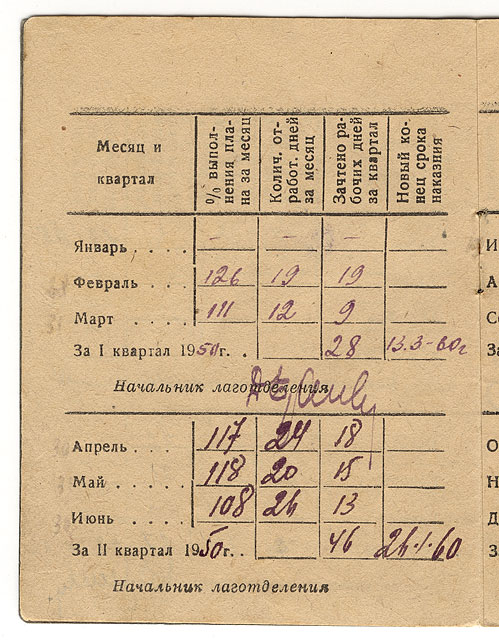 Месяц и квартал
% выпол-
нения пла-
на за месяц
Колич. от-
работ. дней
за месяц
Зачтено ра-
бочих дней
за квартал
Новый ко-
нец срока
наказния
Январь . . . . - - -
Февраль . . . . 126 19 19
Март . . . . 111 12 9
За I квартал 1950г. . 28 13.3-60г
Начальник лаготделения
Апрель . . . . 117 24 18
Май . . . . . 118 20 15
Июнь . . . . . 108 26 13
За II квартал 1950г. . 46 26.1.60
Начальник лаготделения